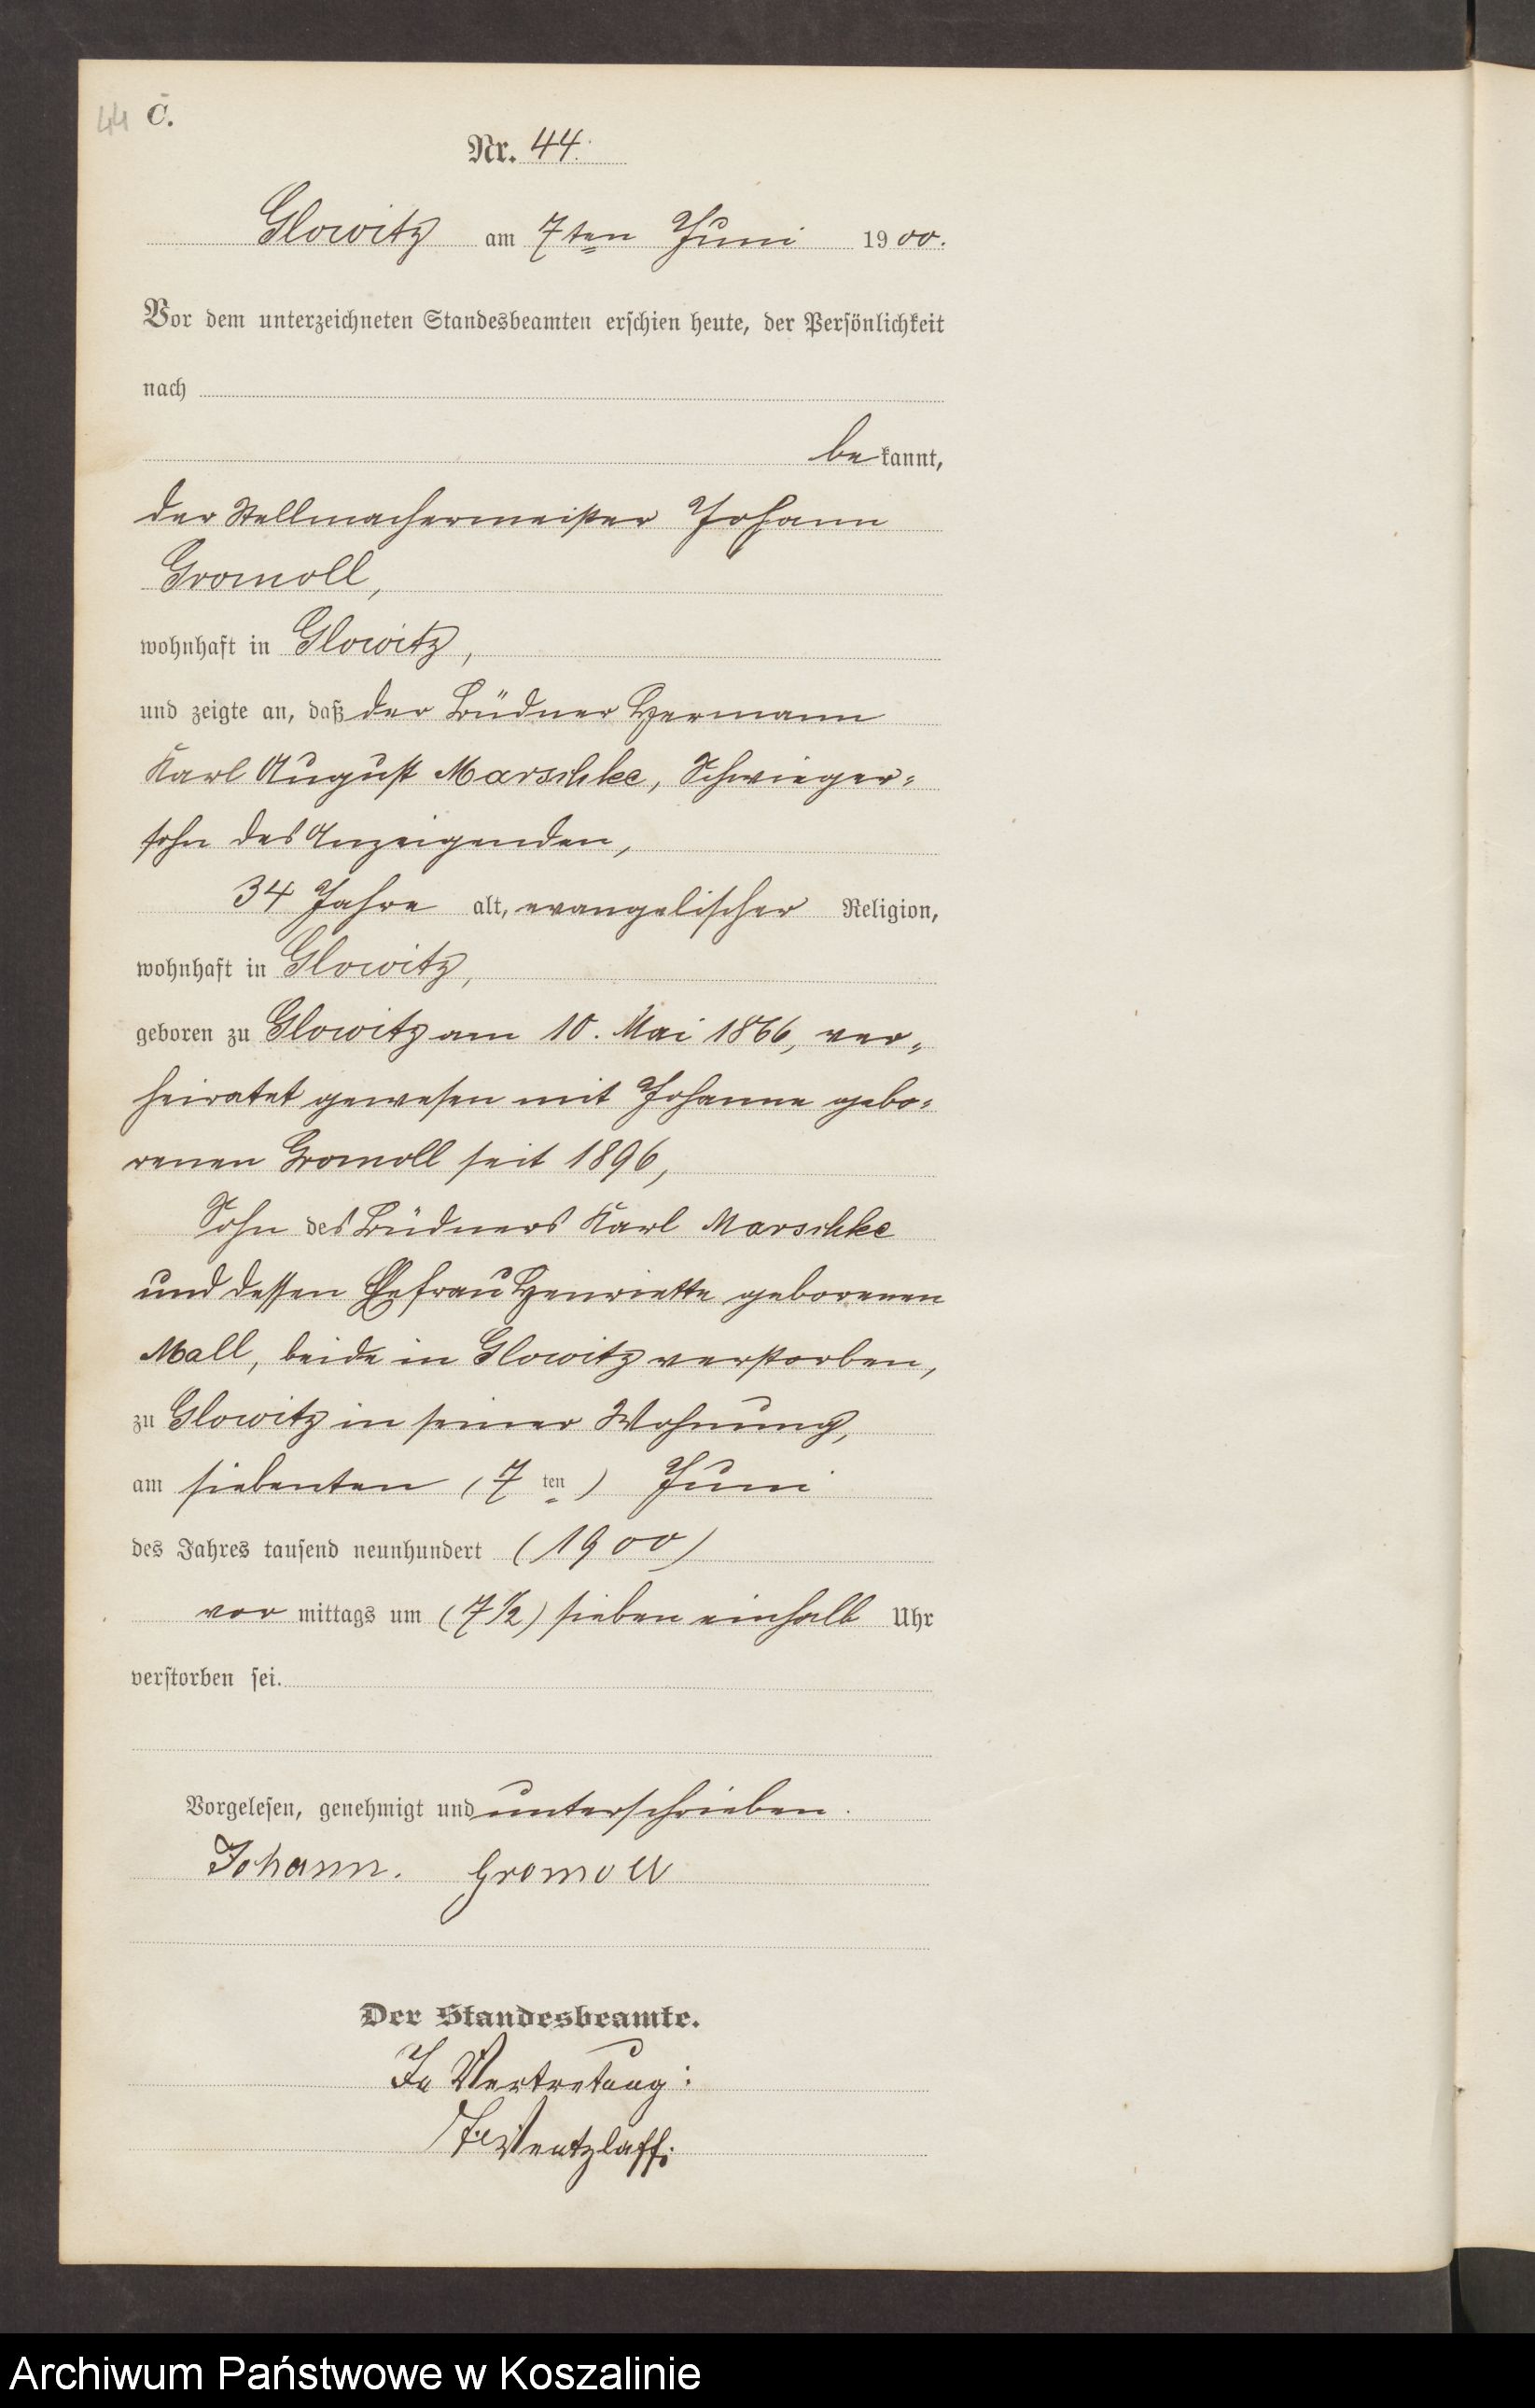 44 C.
Nr. 44.
Glowitz am 7ten Juni 1900.
Vor dem unterzeichneten Standesbeamten erschien heute, der Persönlichkeit
nach
bekannt,
der Stellmachermeister Johann
Gromoll,
wohnhaft in Glowitz,
und zeigte an, daß der Büdner Hermann
Karl August Marschke, Schwieger-
sohn des Anzeigenden,
34 Jahre alt, evangelischer Religion,
wohnhaft in Glowitz,
geboren zu Glowitz am 10. Mai 1866, ver-
heiratet gewesen mit Johanne gebo-
renen Gromoll seit 1896,
Sohn des Büdners Karl Marschke
und dessen Ehefrau Henriette geborenen
Mall, beide in Glowitz verstorben,
zu Glowitz in seiner Wohnung,
am siebenten (7 ten) Juni
des Jahres tausend neunhundert (1900)
vor mittags um (7 1/2) sieben einhalb Uhr
verstorben sei.
Vorgelesen, genehmigt und unterschrieben.
Johann. Gromoll
Der Standesbeamte.
In Vertretung:
Wentzlaff.
Archiwum Państwowe w Koszalinie